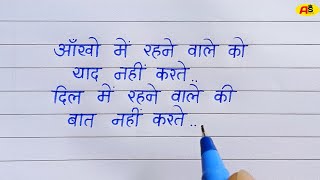 AS
आँखो में रहने वाले को
याद नहीं करते..
दिल में रहने वाले की
बात नहीं करते..